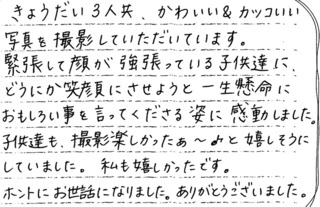 きょうだい3人共、かわいい&カッコいい
写真を撮影していただいています。
緊張して顔が強張っている子供達に、
どうにか笑顔にさせようと一生懸命に
おもしろい事を言ってくださる姿に感動しました。
子供達も、撮影楽しかったぁ〜♪と嬉しそうに
していました。私も嬉しかったです。
ホントにお世話になりました。ありがとうございました。